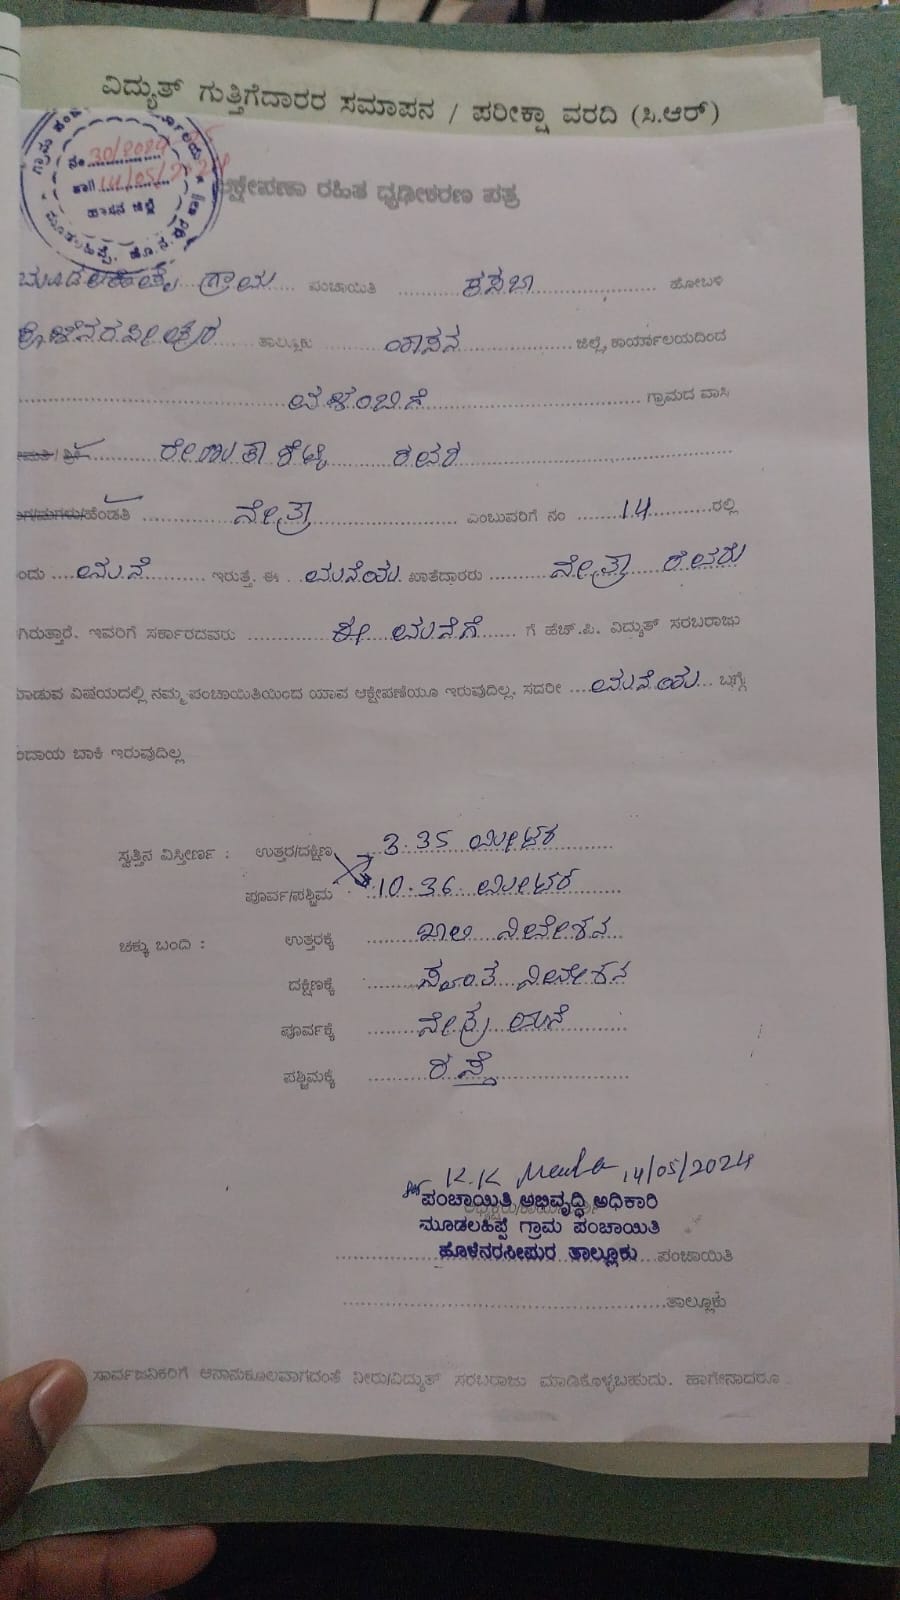 ವಿದ್ಯುತ್ ಗುತ್ತಿಗೆದಾರರ ಸಮಾಪನ / ಪರೀಕ್ಷಾ ವರದಿ (ಸಿ.ಆರ್)
ನಂ 30/2024-25
ದಿನಾಂಕ 14/05/2024
ಹಾಸನ ಜಿಲ್ಲೆ
ಆಕ್ಷೇಪಣಾ ರಹಿತ ಧೃಢೀಕರಣ ಪತ್ರ
ಮೂಡಲಹಿಪ್ಪೆ ಗ್ರಾಮ ಪಂಚಾಯಿತಿ ಕಸಬಾ ಹೋಬಳಿ
ಹೊಳೆನರಸೀಪುರ ತಾಲ್ಲೂಕು ಹಾಸನ ಜಿಲ್ಲೆ, ಕಾರ್ಯಾಲಯದಿಂದ
ಗ್ರಾಮದ ವಾಸಿ
ಶ್ರೀ ರೇಣುಕಾ
ಹೆಂಡತಿ ನೇತ್ರಾ ಎಂಬುವರಿಗೆ ನಂ 14 ರಲ್ಲಿ
ಂದು ಮನೆ ಇರುತ್ತೆ. ಈ ಮನೆಯ ಖಾತೆದಾರರು ನೇತ್ರಾ ರವರು
ಗಿರುತ್ತಾರೆ. ಇವರಿಗೆ ಸರ್ಕಾರದವರು ಈ ಮನೆಗೆ ಗೆ ಹೆಚ್.ಪಿ. ವಿದ್ಯುತ್ ಸರಬರಾಜು
ಮಾಡುವ ವಿಷಯದಲ್ಲಿ ನಮ್ಮ ಪಂಚಾಯಿತಿಯಿಂದ ಯಾವ ಆಕ್ಷೇಪಣೆಯೂ ಇರುವುದಿಲ್ಲ. ಸದರೀ ಮನೆಯ ಬಗ್ಗೆ
ಂದಾಯ ಬಾಕಿ ಇರುವುದಿಲ್ಲ
ಸ್ವತ್ತಿನ ವಿಸ್ತೀರ್ಣ : ಉತ್ತರ/ದಕ್ಷಿಣ 3.35 ಮೀಟರ
ಪೂರ್ವ/ಪಶ್ಚಿಮ 10.36 ಮೀಟರ
ಚಕ್ಕು ಬಂದಿ : ಉತ್ತರಕ್ಕೆ ಖಾಲಿ ನಿವೇಶನ
ದಕ್ಷಿಣಕ್ಕೆ ಸ್ವಂತ ನಿವೇಶನ
ಪೂರ್ವಕ್ಕೆ ನೇತ್ರ ಮನೆ
ಪಶ್ಚಿಮಕ್ಕೆ ರಸ್ತೆ
K.K 14/05/2024
ಪಂಚಾಯಿತಿ ಅಭಿವೃದ್ಧಿ ಅಧಿಕಾರಿ
ಮೂಡಲಹಿಪ್ಪೆ ಗ್ರಾಮ ಪಂಚಾಯಿತಿ
ಹೊಳೆನರಸೀಪುರ ತಾಲ್ಲೂಕು ಪಂಚಾಯಿತಿ
ತಾಲ್ಲೂಕು
ಸಾರ್ವಜನಿಕರಿಗೆ ಅನಾನುಕೂಲವಾಗದಂತೆ ನೀರು/ವಿದ್ಯುತ್ ಸರಬರಾಜು ಮಾಡಿಕೊಳ್ಳಬಹುದು. ಹಾಗೇನಾದರೂ